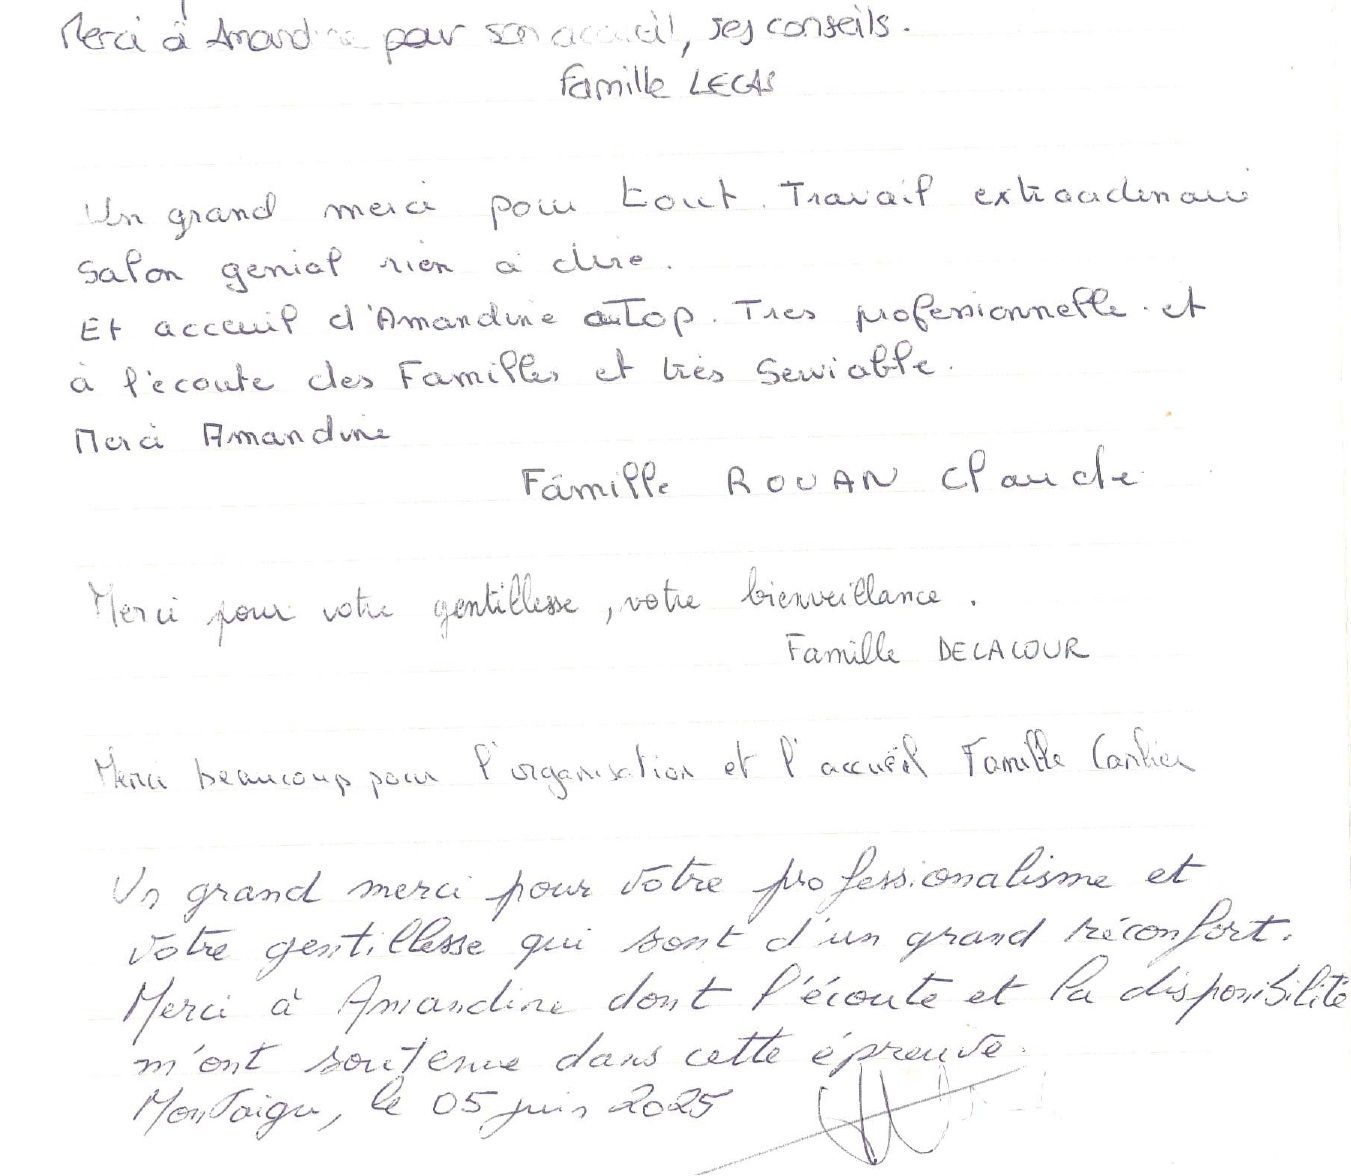 Merci à Amandine pour son accueil, ses conseils.
Famille LECAS
Un grand merci pour tout. Travail extraordinaire
Salon genial rien a dire.
Et acceuil d'Amandine au Top. Tres professionnelle. et
à l'écoute des Familles et très Serviable.
Merci Amandine
Famille ROUAN Claude
Merci pour votre gentillesse, votre bienveillance.
Famille DELACOUR
Merci beaucoup pour l'organisation et l'accueil Famille
Un grand merci pour votre professionalisme et
votre gentillesse qui sont d'un grand réconfort.
Merci à Amandine dont l'écoute et la disponibilité
m'ont soutenue dans cette épreuve.
Montaigu, le 05 juin 2025